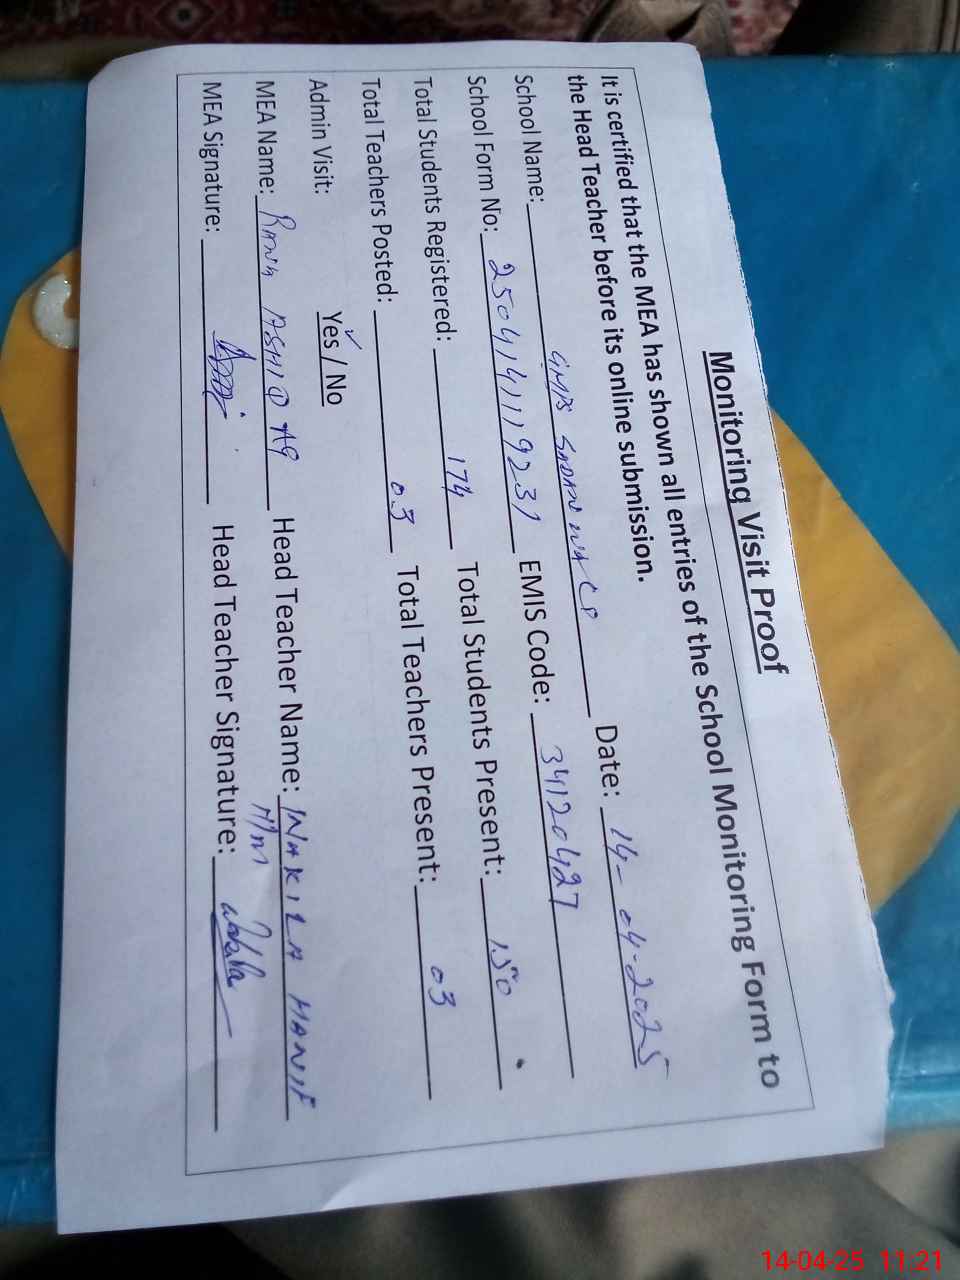 Monitoring Visit Proof
It is certified that the MEA has shown all entries of the School Monitoring Form to
the Head Teacher before its online submission.
School Name: GMPS Date: 14-04-2025
School Form No: 2504141119231 EMIS Code: 34120427
Total Students Registered: 174 Total Students Present: 150
Total Teachers Posted: 03 Total Teachers Present: 03
Admin Visit: Yes / No
MEA Name: RANA ASHIQ Head Teacher Name: WAKILA HANIF
MEA Signature: Head Teacher Signature:
14-04-25 11:21